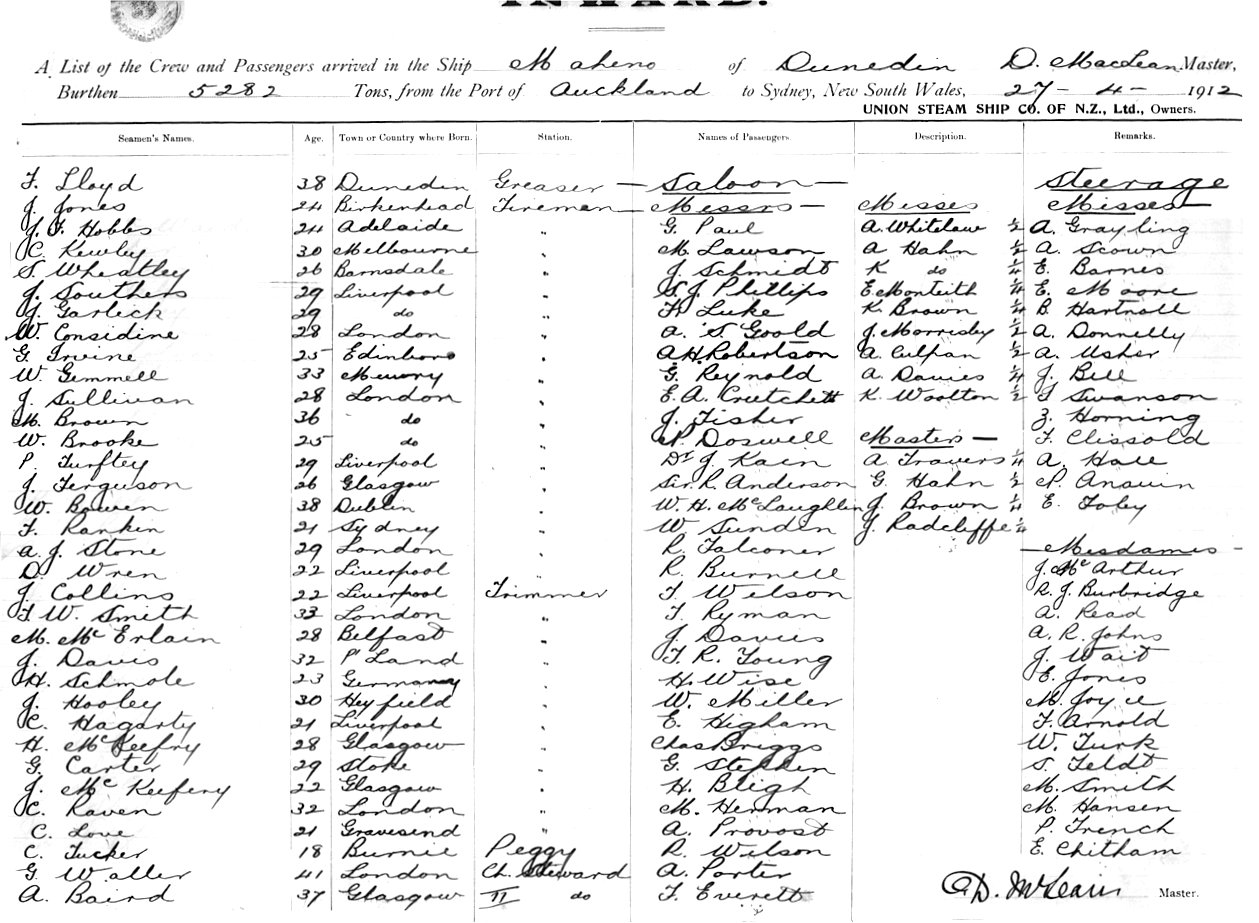 INWARD.
A List of the Crew and Passengers arrived in the Ship Maheno of Dunedin D. MacLean Master,
Burthen 5282 Tons, from the Port of Auckland to Sydney, New South Wales, 27 - 4 - 1912
UNION STEAM SHIP CO. OF N.Z., Ltd., Owners.
Seamen's Names. Age. Town or Country where Born. Station. Names of Passengers. Description. Remarks.
F. Lloyd 38 Dunedin Greaser — Saloon — Steerage
J. Jones 24 Birkenhead Fireman — Messrs — Misses Misses —
J. F. Hobbs 24 Adelaide " G. Paul A. Whitelaw ½ A. Grayling
C. Kewley 30 Melbourne " M. Lawson A Hahn ½ A. Scown
S. Wheatley 26 Barnsdale " J. Schmidt K do ¼ E. Barnes
J. Southers 29 Liverpool " S. J. Phillips E Monteith ¼ E. Moore
J. Garleck 29 do " F. Luke K. Brown ¼ B. Hartnoll
W. Considine 28 London " A. S Goold J. Morrisby ½ A. Donnelly
G. Irvine 25 Edinboro " A. H. Robertson A. Culpan ½ A. Usher
W. Gemmell 33 " G. Reynold A. Davies ¼ J. Bell
J. Sullivan 28 London " E. A. Crutchett K. Woolton ½ S Swanson
M. Brown 36 do " J. Fisher Z. Horning
W. Brooke 25 do " P. Doswell Masters — F. Clissold
P. Turftey 29 Liverpool " Dr J. Kain A Travers ¼ A. Hall
J. Ferguson 26 Glasgow " Sir. R. Anderson G. Hahn ½ P.
W. Bowen 38 Dublin " W. H. McLaughlin J. Brown ¼ E. Foley
F. Rankin 21 Sydney " W Sunden J. Radcliffe ¼
A. J. Stone 29 London " R. Falconer — Mesdames —
D. Wren 22 Liverpool " R. Burnell J. McArthur
J. Collins 22 Liverpool Trimmer F. Wilson R. J. Burbridge
F W. Smith 33 London " F. Ryman A. Read
M. McErlain 28 Belfast " J. Davies A. R. Johns
J. Davis 32 P' Land " F. R. Young J. Wait
H. Schmole 23 Germany " H. Wise E. Jones
J. Hooley 30 Heyfield " W. Miller M. Joyce
C. Hagarty 21 Liverpool " E. Higham F. Arnold
H. McKeefry 28 Glasgow " Chas Briggs W. Turk
G. Carter 29 Stoke " G. Stephen S. Feldt
J. McKeefery 22 Glasgow " H. Bligh M. Smith
C. Raven 32 London " M. Herman M. Hansen
C. Love 21 Gravesend " A. Provost P. French
C. Tucker 18 Burnie Peggy R. Wilson E. Chitham
G. Waller 41 London Ch. Steward A. Porter
A. Baird 37 Glasgow II do F. Everett
D. McLean Master.